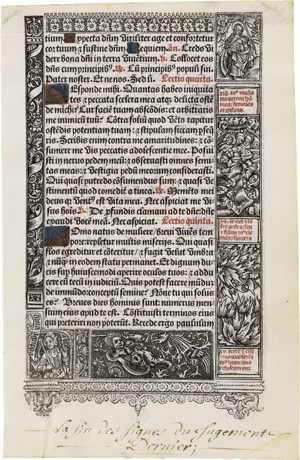 tium. Expecta dñm Viriliter age et confortetur
cor tuum et sustine dñm. Requiem. añ. Credo vi
dere bona dñi in terra viuẽtium. Collocet eos
dñs cum principibꝰ populi sui.
Pater noster. Et ne nos. Sed li. Lectio quarta.
Responde mihi. Quantas habeo iniquita
tes et peccata scelera mea atqꝫ delicta ostẽ
de mihi Cur faciẽ tuam abscõdis: et arbitraris
me inimicũ tuũ: Cõtra foliũ quod vẽto rapitur
ostẽdis potentiam tuam: et stipulam siccam pseq̃
ris. Scribis enim contra me amaritudines: et cõ
sumere me vis peccatis adolescentie mee. Posui
sti in neruo pedem meũ: et obseruasti omnes semi
tas meas: et vestigia pedũ meorum considerasti.
Qui quasi putredo cõsumendus sum: et quasi ve
stimentũ quod comeditur a tinea. Memẽto mei
deus qꝛ ventꝰ est vita mea. Nec aspiciat me vi
sus hoĩs. De profundis clamaui ad te dñe dñe
exaudi vocẽ meã. Nec aspiciat. Lectio quinta.
Homo natus de muliere breui viuẽs tem
pore repletur multis miseriis. Qui quasi
flos egreditur et cõteritur et fugit velut vmbra
et nũqꝫ in eodem statu permanet. Et dignum du
cis sup huiuscemodi aperire oculos tuos: et addu
cere eũ tecũ in iudiciũ. Quis potest facere mũdũ
de immũdo conceptũ semine? Nõne tu qui solus
es? Breues dies hominis sunt: numerus men
sium eius apud te est. Cõstituisti terminos eius
qui preteriri non poterunt. Recede ergo paululum
La fin des signes du Jugement
Dernier;